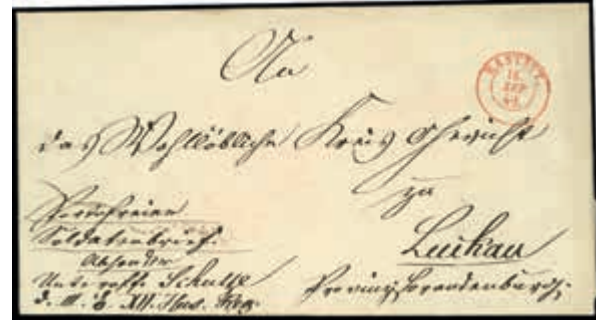 An
RASTATT
16
SEP
das Wohllöbliche Kreis Gericht
zu
Luckau
Provinz Brandenburg.
Portofreier
Soldatenbrief.
Absender
Unteroff. Schulze
XII. Hus. Reg.